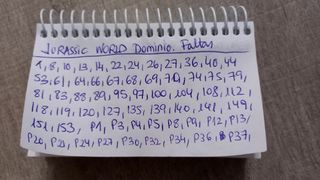 JURASSIC WORLD Dominio. Faltas
1, 8, 10, 13, 14, 22, 24, 26, 27, 36, 40, 44
53, 61, 64, 66, 67, 68, 69, 70, 74, 75, 79,
81, 83, 88, 89, 95, 97, 100, 104, 108, 112,
118, 119, 120, 127, 135, 139, 140, 141, 149,
151, 153, P1, P3, P4, P5, P8, P9, P12, P13,
P20, P21, P24, P27, P30, P32, P34, P36, P37,